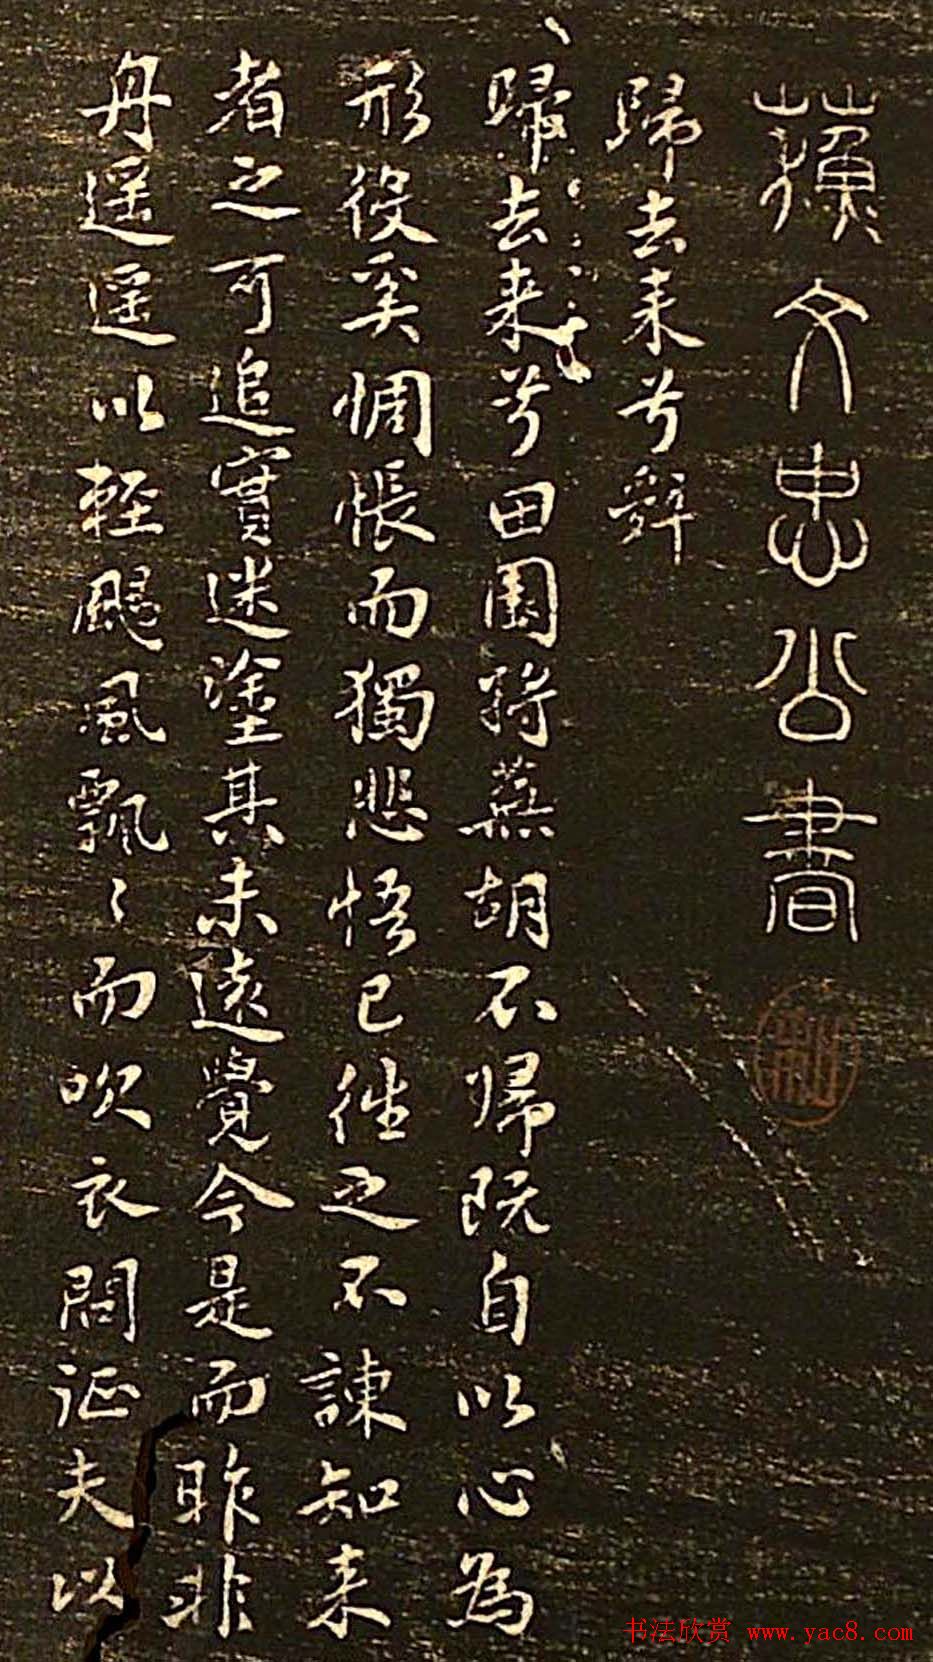 蘇文忠公書
歸去来兮辭
歸去来兮田園将蕪胡不帰既自以心為
形役奚惆悵而獨悲悟已往之不諫知来
者之可追實迷塗其未遠覺今是而昨非
舟遥遥以輕颺風飄〻而吹衣問征夫以
书法欣赏 www.yac8.com